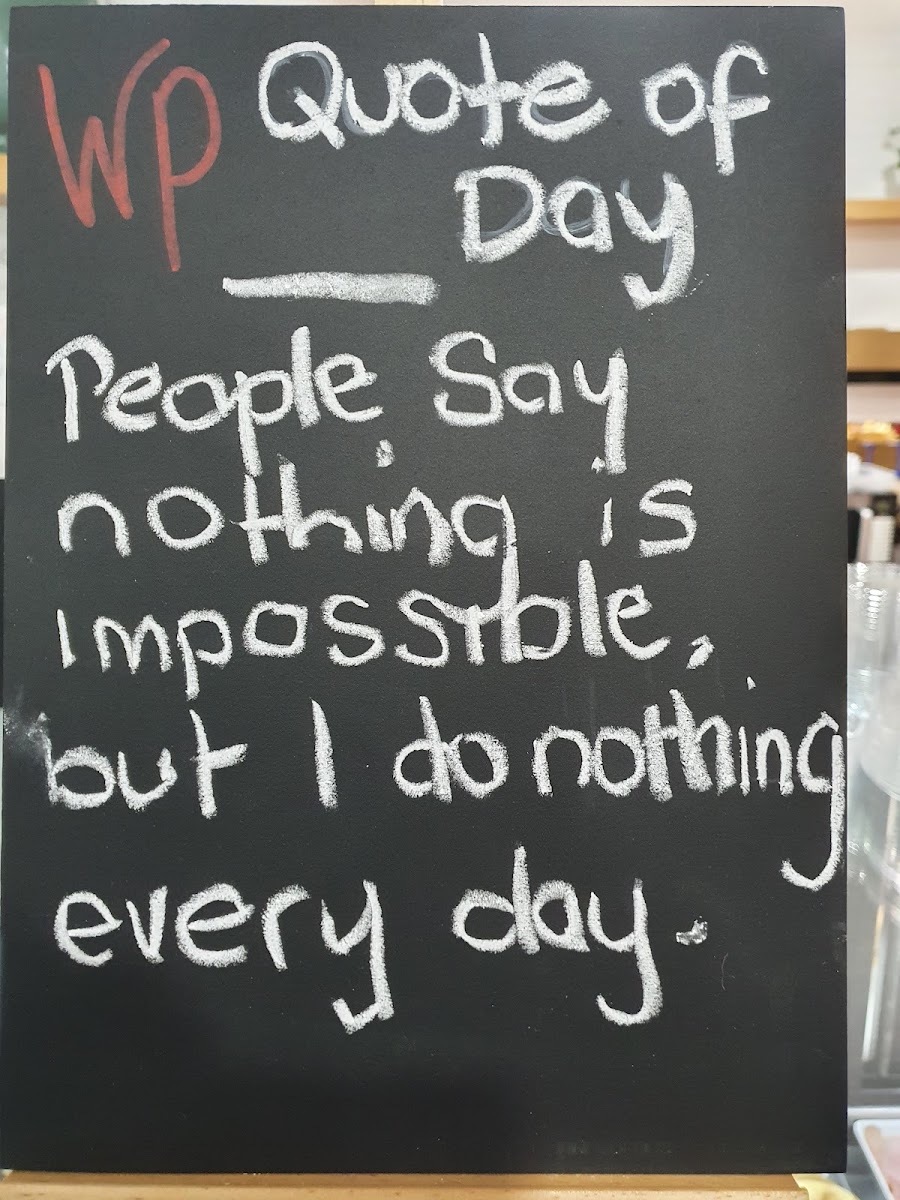 WP Quote of
Day
People Say
nothing is
impossible,
but I do nothing
every day.